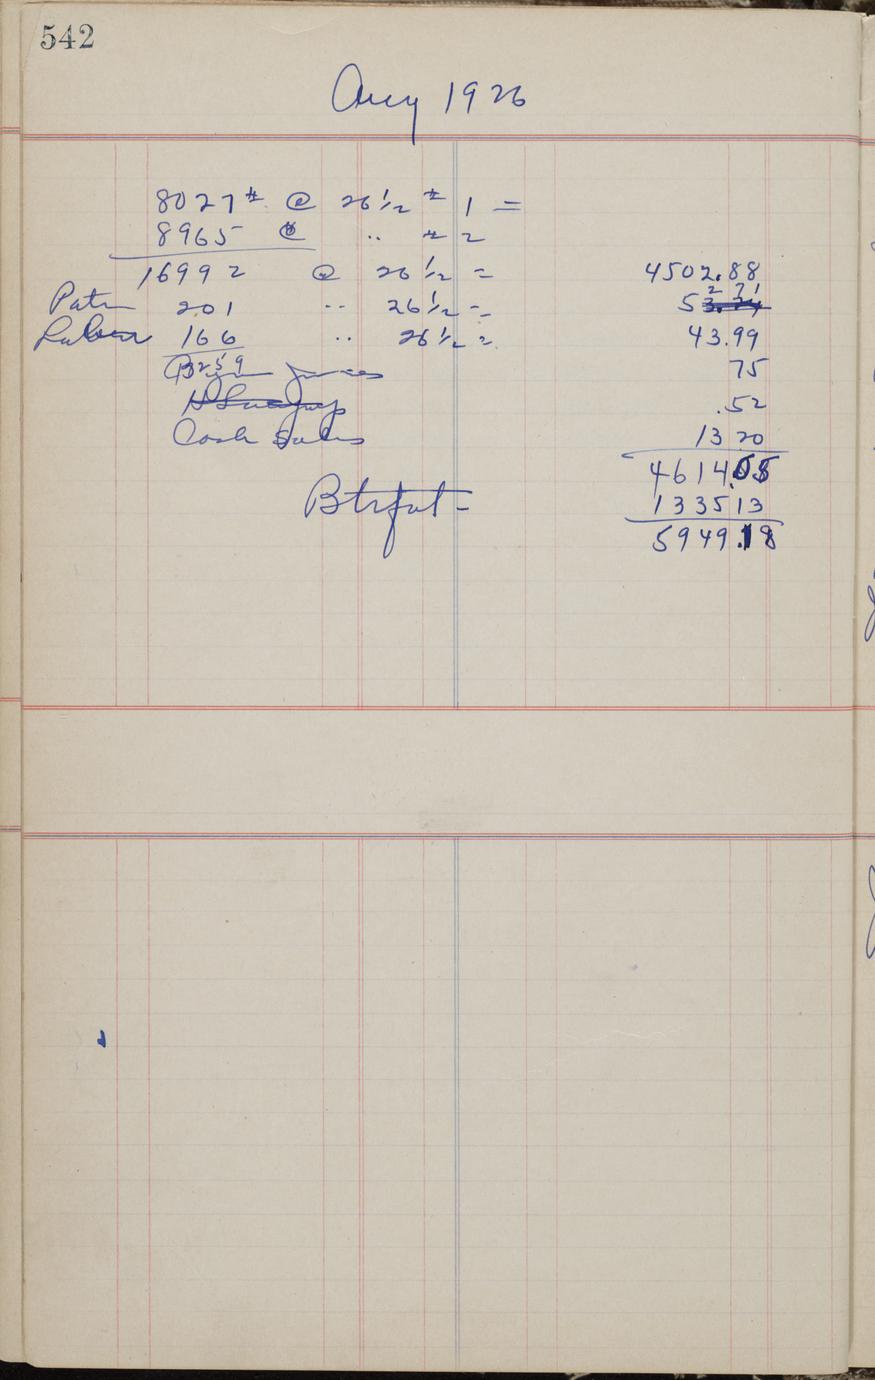 542
Aug 1926
8027# @ 26 1/2 # 1 =
8965 @ .. # 2
16992 @ 26 1/2 = 4502.88
Patr 201 .. 26 1/2 = 52 71
Labor 166 .. 26 1/2 = 43.99
359 75
.52
Cash Sales 13 20
4614.05
Btrfat = 1335 13
5949.18